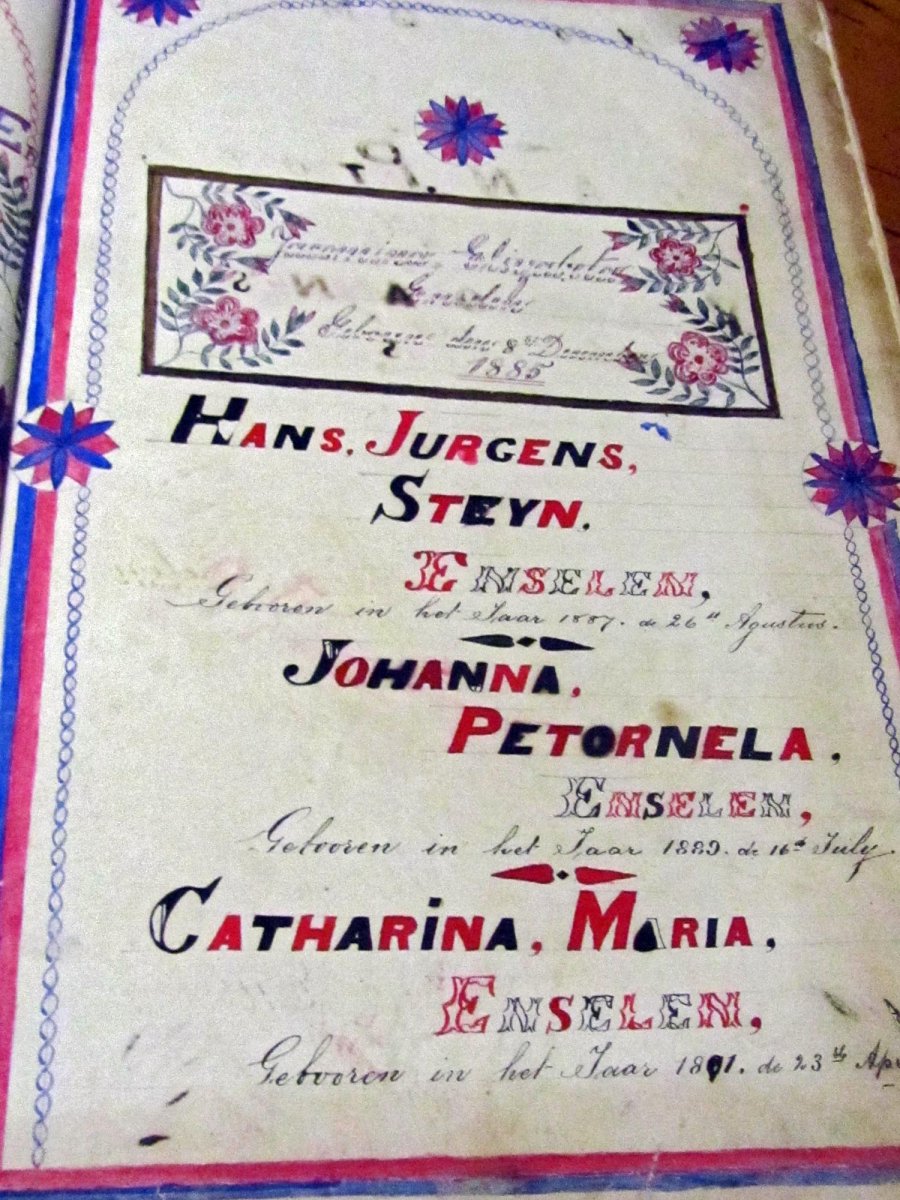 Elizabeta
Enselen
Gebooren den 8st December
1885
HANS, JURGENS,
STEYN.
ENSELEN,
Gebooren in het Jaar 1887. de 26st Agustus.
JOHANNA,
PETORNELA,
ENSELEN,
Gebooren in het Jaar 1889. de 16th July.
CATHARINA, MARIA,
ENSELEN,
Gebooren in het Jaar 1891. de 23th Ap